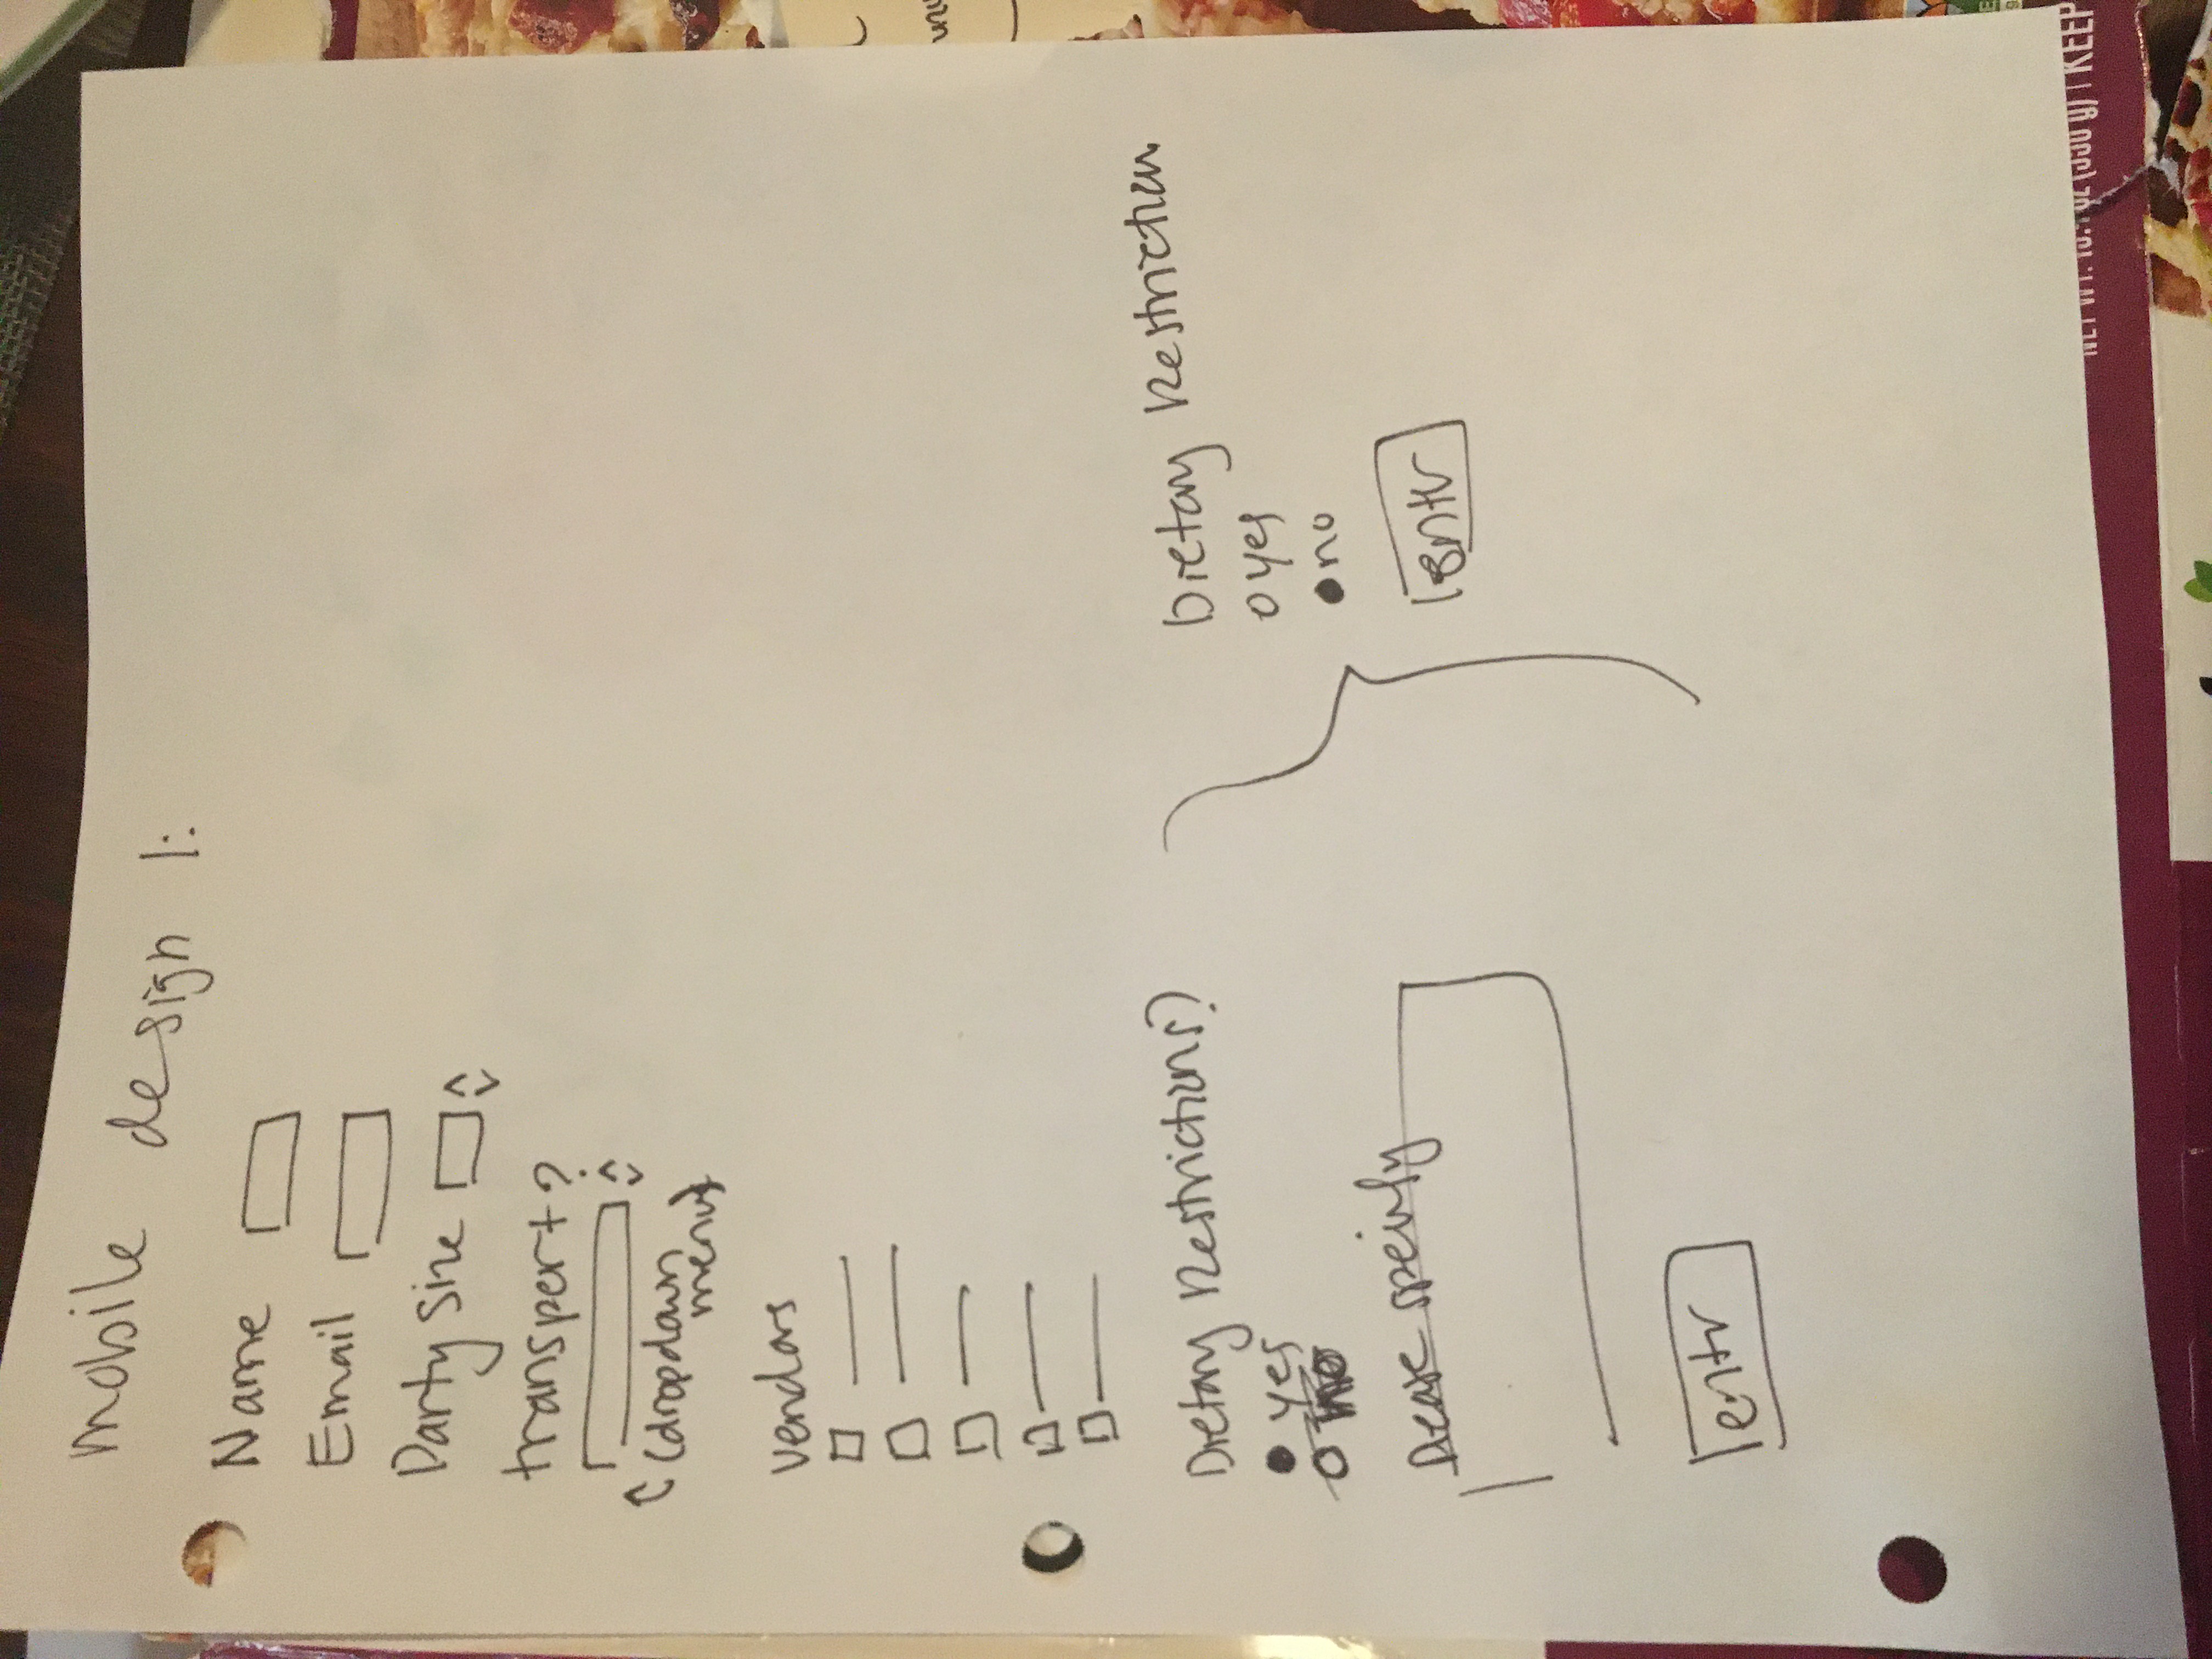 mobile design 1:
Name
Email
Party Size
transport?
(dropdown
menu)
vendors
Dietary Restrictions?
yes
no
Please specify
entr
Dietary Restriction
yes
no
entr
KEEP